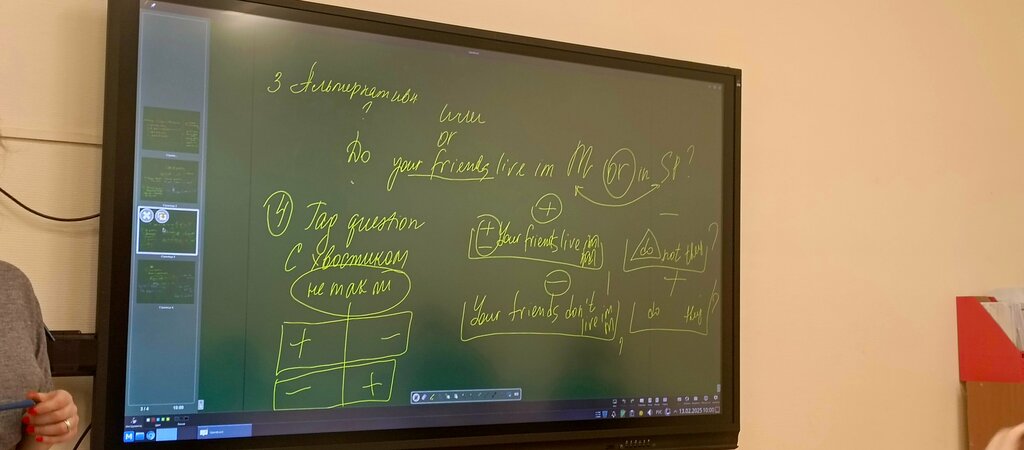 3 Альтернативн
?
или
or
Do your friends live in M or in SP?
4 Tag question
С хвостиком
не так ли
+ −
− +
+
± Your friends live in M
−
do not they?
−
Your friends don't live in M,
+
do they?
3 / 4
10:00
РУС
13.02.2025 10:00